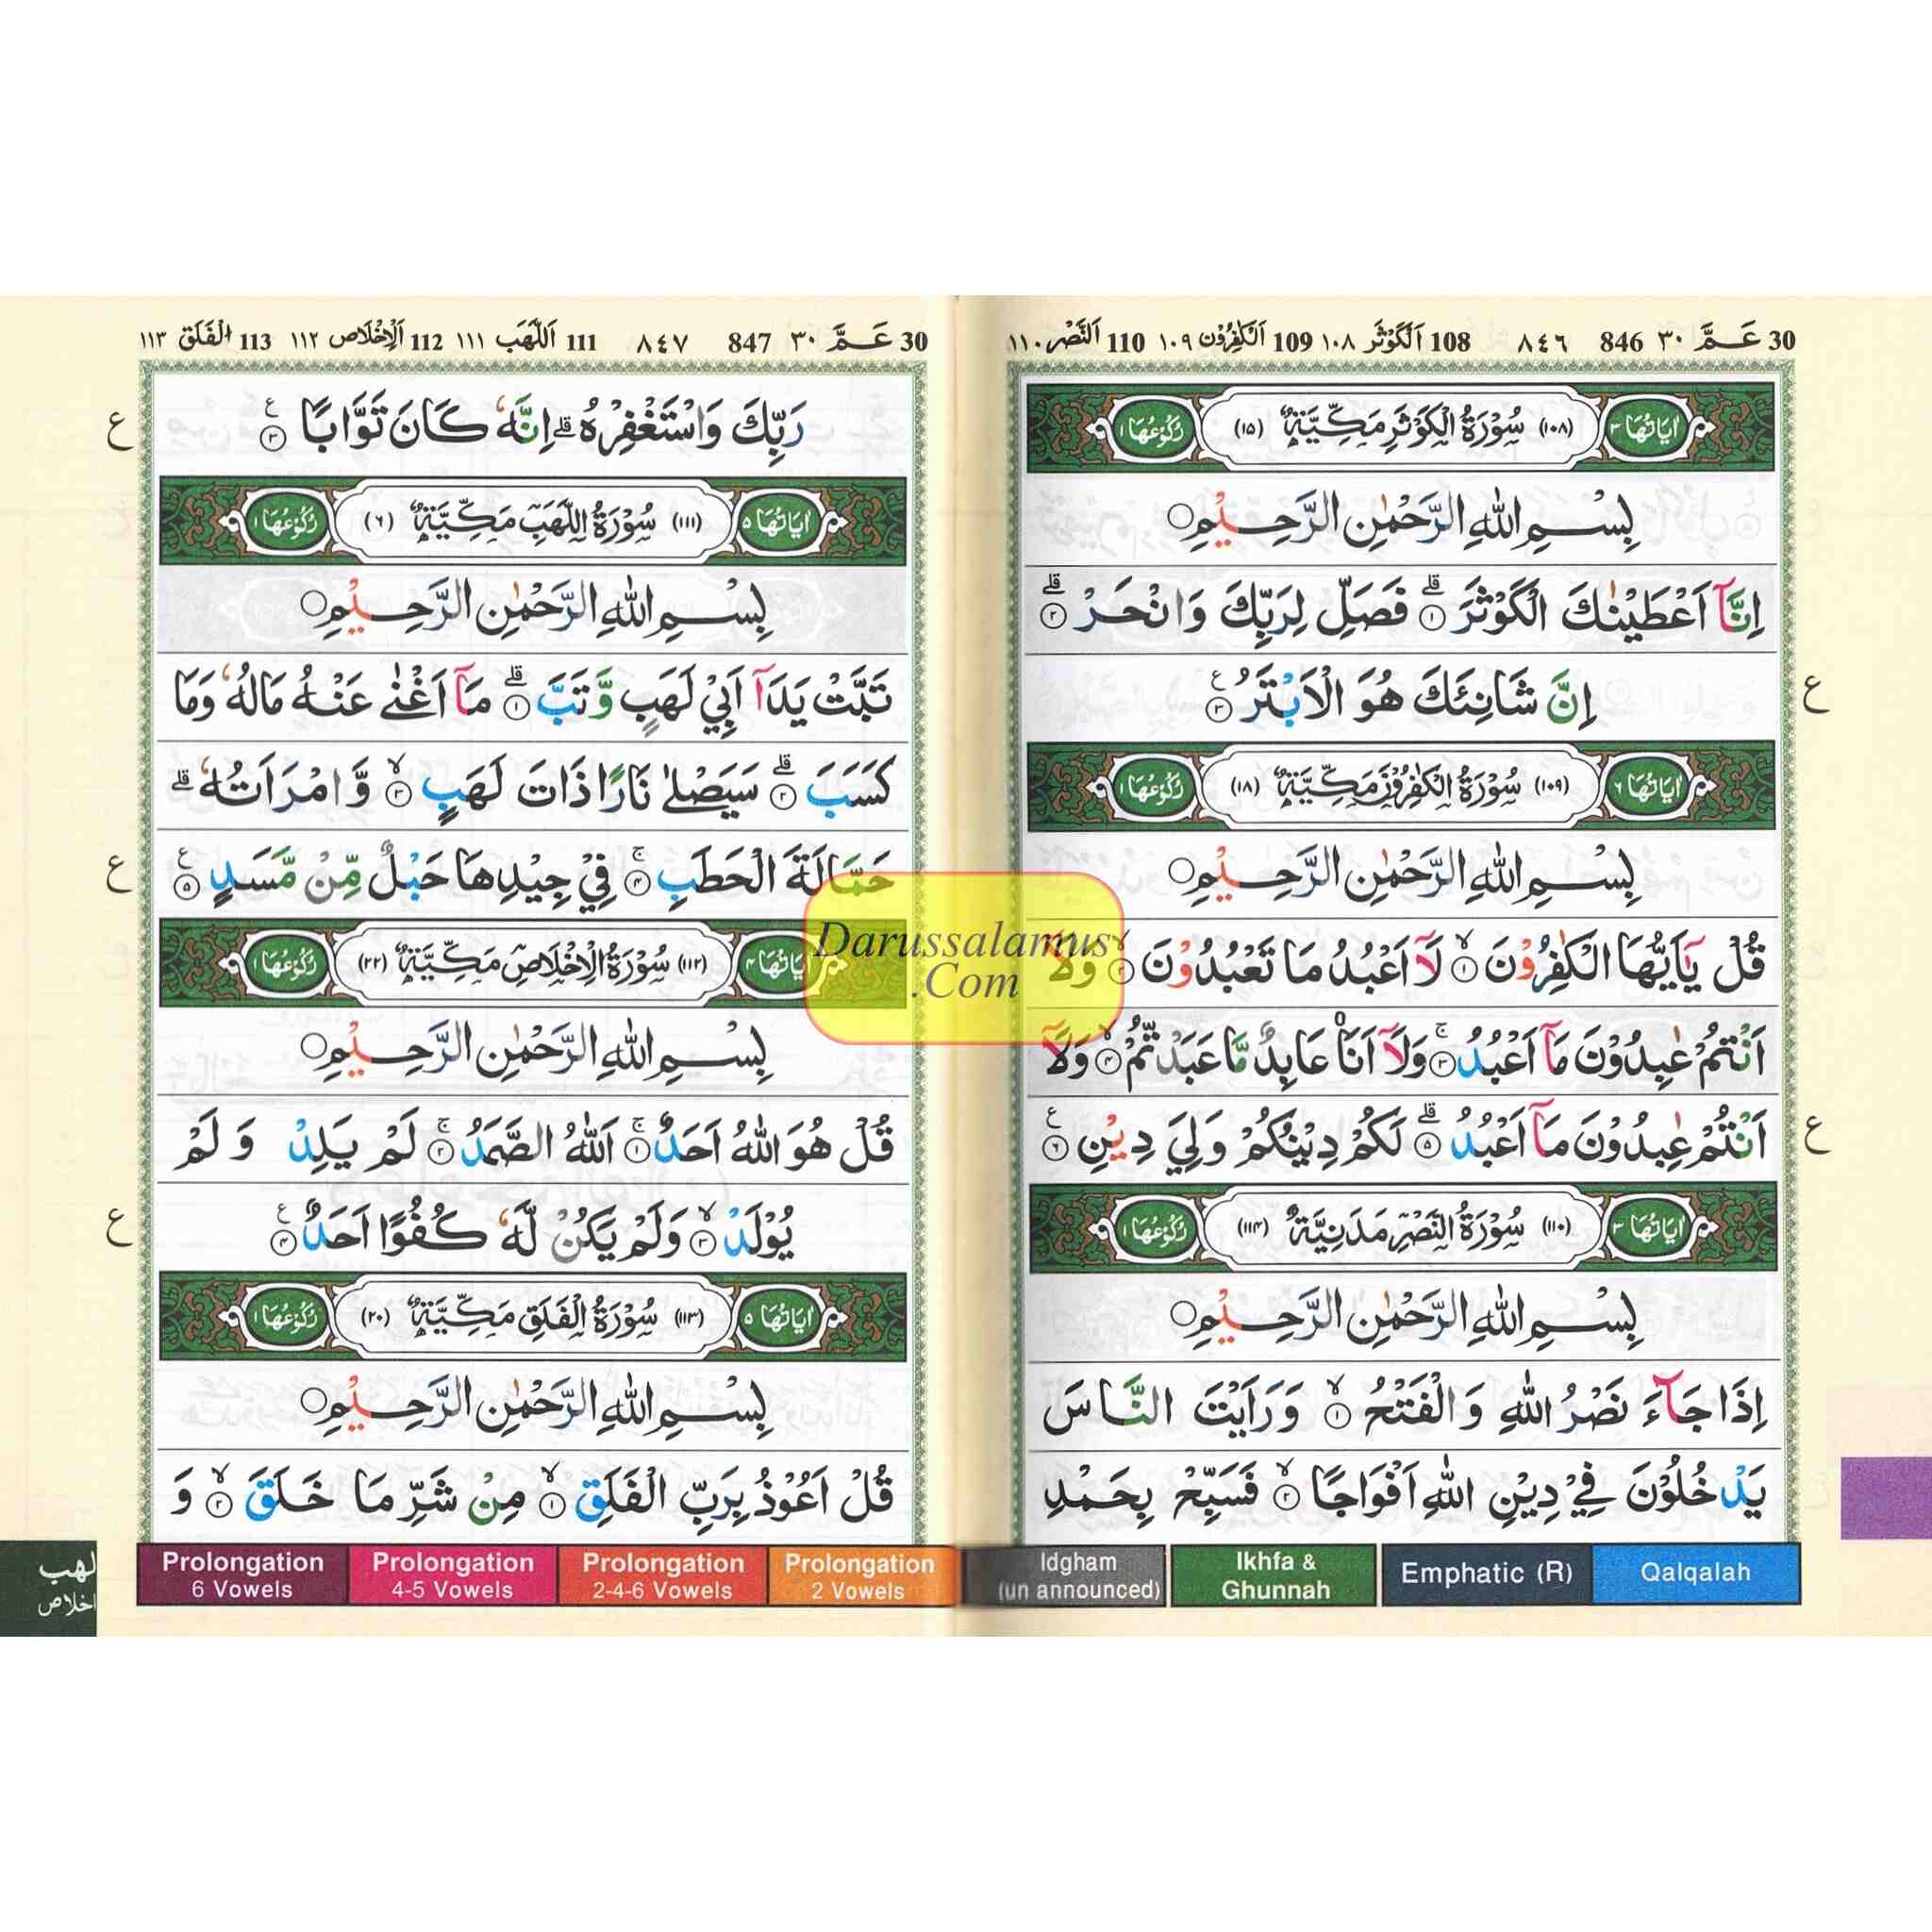 30 عَـمَّ ٣٠ 846 ٨٤٦ 108 اَلْكَوْثَر ١٠٨ 109 اَلْكٰفِرُوْن ١٠٩ 110 اَلنَّصْر ١١٠
اٰيَاتُهَا ٣ (١٠٨) سُوْرَةُ الْكَوْثَرِ مَكِّيَّةٌ (١٥) رُكُوْعُهَا ١
بِسْمِ اللّٰهِ الرَّحْمٰنِ الرَّحِيْمِ ○
اِنَّآ اَعْطَيْنٰكَ الْكَوْثَرَ ۟ؕ ١ فَصَلِّ لِرَبِّكَ وَانْحَرْ ؕ ٢
اِنَّ شَانِئَكَ هُوَ الْاَبْتَرُ ٣ ع
ع
اٰيَاتُهَا ٦ (١٠٩) سُوْرَةُ الْكٰفِرُوْنَ مَكِّيَّةٌ (١٨) رُكُوْعُهَا ١
بِسْمِ اللّٰهِ الرَّحْمٰنِ الرَّحِيْمِ ○
قُلْ يٰٓاَيُّهَا الْكٰفِرُوْنَ ١ۙ لَآ اَعْبُدُ مَا تَعْبُدُوْنَ ٢ۙ وَلَآ
اَنْتُمْ عٰبِدُوْنَ مَآ اَعْبُدُ ٣ۚ وَلَآ اَنَا۠ عَابِدٌ مَّا عَبَدْتُّمْ ٤ۙ وَلَآ
اَنْتُمْ عٰبِدُوْنَ مَآ اَعْبُدُ ٥ؕ لَكُمْ دِيْنُكُمْ وَلِيَ دِيْنِ ٦ ع
ع
اٰيَاتُهَا ٣ (١١٠) سُوْرَةُ النَّصْرِ مَدَنِيَّةٌ (١١٤) رُكُوْعُهَا ١
بِسْمِ اللّٰهِ الرَّحْمٰنِ الرَّحِيْمِ ○
اِذَا جَآءَ نَصْرُ اللّٰهِ وَالْفَتْحُ ١ۙ وَرَاَيْتَ النَّاسَ
يَدْخُلُوْنَ فِيْ دِيْنِ اللّٰهِ اَفْوَاجًا ٢ۙ فَسَبِّحْ بِحَمْدِ
30 عَـمَّ ٣٠ 847 ٨٤٧ 111 اَللَّهَب ١١١ 112 اَلْاِخْلَاص ١١٢ 113 الْفَلَق ١١٣
رَبِّكَ وَاسْتَغْفِرْهُ ؔؕ اِنَّهٗ كَانَ تَوَّابًا ٣ ع
ع
اٰيَاتُهَا ٥ (١١١) سُوْرَةُ اللَّهَبِ مَكِّيَّةٌ (٦) رُكُوْعُهَا ١
بِسْمِ اللّٰهِ الرَّحْمٰنِ الرَّحِيْمِ ○
تَبَّتْ يَدَآ اَبِيْ لَهَبٍ وَّتَبَّ ١ؕ مَآ اَغْنٰى عَنْهُ مَالُهٗ وَمَا
كَسَبَ ٢ؕ سَيَصْلٰى نَارًا ذَاتَ لَهَبٍ ٣ۙ وَّامْرَاَتُهٗ ؕ
حَمَّالَةَ الْحَطَبِ ٤ۚ فِيْ جِيْدِهَا حَبْلٌ مِّنْ مَّسَدٍ ٥ ع
ع
اٰيَاتُهَا ٤ (١١٢) سُوْرَةُ الْاِخْلَاصِ مَكِّيَّةٌ (٢٢) رُكُوْعُهَا ١
بِسْمِ اللّٰهِ الرَّحْمٰنِ الرَّحِيْمِ ○
قُلْ هُوَ اللّٰهُ اَحَدٌ ١ۚ اَللّٰهُ الصَّمَدُ ٢ۚ لَمْ يَلِدْ وَلَمْ
يُوْلَدْ ٣ۙ وَلَمْ يَكُنْ لَّهٗ كُفُوًا اَحَدٌ ٤ ع
ع
اٰيَاتُهَا ٥ (١١٣) سُوْرَةُ الْفَلَقِ مَكِّيَّةٌ (٢٠) رُكُوْعُهَا ١
بِسْمِ اللّٰهِ الرَّحْمٰنِ الرَّحِيْمِ ○
قُلْ اَعُوْذُ بِرَبِّ الْفَلَقِ ١ۙ مِنْ شَرِّ مَا خَلَقَ ٢ۙ وَ
Darussalamus
.Com
لهب
اخلاص
Prolongation
6 Vowels
Prolongation
4-5 Vowels
Prolongation
2-4-6 Vowels
Prolongation
2 Vowels
Idgham
(un announced)
Ikhfa &
Ghunnah
Emphatic (R)
Qalqalah